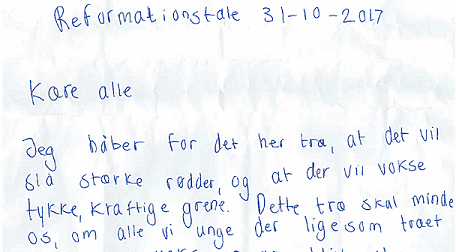 Reformationstale 31-10-2017
Kære alle
Jeg håber for det her træ, at det vil
slå stærke rødder, og at der vil vokse
tykke, kraftige grene. Dette træ skal minde
os, om alle vi unge der ligesom træet